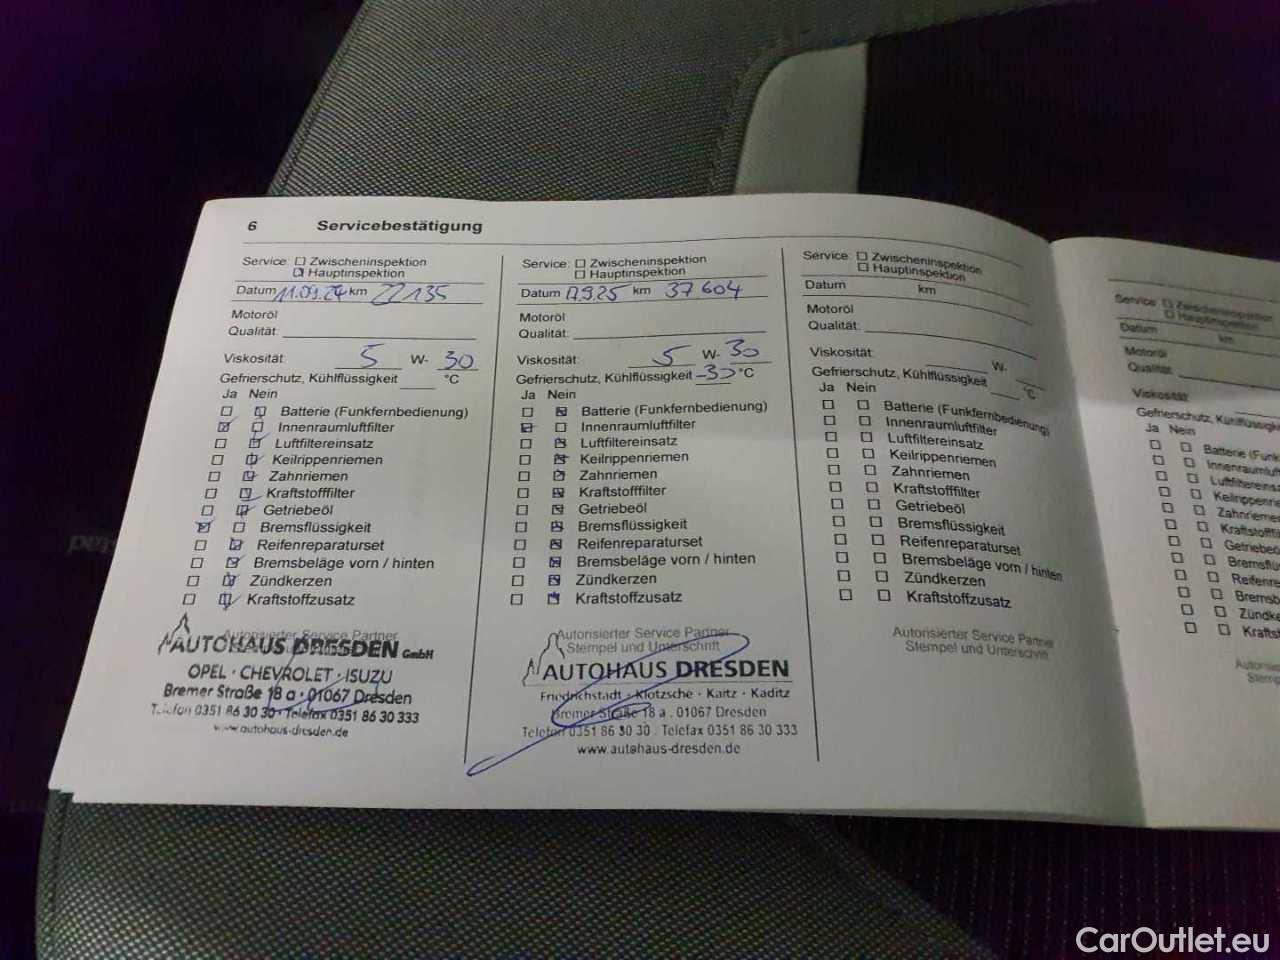 6 Servicebestätigung
Service: ☐ Zwischeninspektion
☒ Hauptinspektion
Datum 11.09.24 km 22135
Motoröl
Qualität:
Viskosität: 5 W- 30
Gefrierschutz, Kühlflüssigkeit °C
Ja Nein
☐ ☒ Batterie (Funkfernbedienung)
☒ ☐ Innenraumluftfilter
☐ ☒ Luftfiltereinsatz
☐ ☒ Keilrippenriemen
☐ ☒ Zahnriemen
☐ ☒ Kraftstofffilter
☐ ☒ Getriebeöl
☒ ☐ Bremsflüssigkeit
☐ ☒ Reifenreparaturset
☐ ☒ Bremsbeläge vorn / hinten
☐ ☒ Zündkerzen
☐ ☒ Kraftstoffzusatz
Autorisierter Service Partner
AUTOHAUS DRESDEN GmbH
OPEL · CHEVROLET · ISUZU
Bremer Straße 18 a · 01067 Dresden
Telefon 0351 86 30 30 · Telefax 0351 86 30 333
www.autohaus-dresden.de
Service: ☐ Zwischeninspektion
☐ Hauptinspektion
Datum 17.9.25 km 37604
Motoröl
Qualität:
Viskosität: 5 W- 30
Gefrierschutz, Kühlflüssigkeit -30 °C
Ja Nein
☐ ☒ Batterie (Funkfernbedienung)
☒ ☐ Innenraumluftfilter
☐ ☒ Luftfiltereinsatz
☐ ☒ Keilrippenriemen
☐ ☒ Zahnriemen
☐ ☒ Kraftstofffilter
☐ ☒ Getriebeöl
☐ ☒ Bremsflüssigkeit
☐ ☒ Reifenreparaturset
☐ ☒ Bremsbeläge vorn / hinten
☐ ☒ Zündkerzen
☐ ☒ Kraftstoffzusatz
Autorisierter Service Partner
Stempel und Unterschrift
AUTOHAUS DRESDEN
Friedrichstadt · Klotzsche · Kaitz · Kaditz
Bremer Straße 18 a . 01067 Dresden
Telefon 0351 86 30 30 . Telefax 0351 86 30 333
www.autohaus-dresden.de
Service: ☐ Zwischeninspektion
☐ Hauptinspektion
Datum km
Motoröl
Qualität:
Viskosität: W-
Gefrierschutz, Kühlflüssigkeit °C
Ja Nein
☐ ☐ Batterie (Funkfernbedienung)
☐ ☐ Innenraumluftfilter
☐ ☐ Luftfiltereinsatz
☐ ☐ Keilrippenriemen
☐ ☐ Zahnriemen
☐ ☐ Kraftstofffilter
☐ ☐ Getriebeöl
☐ ☐ Bremsflüssigkeit
☐ ☐ Reifenreparaturset
☐ ☐ Bremsbeläge vorn / hinten
☐ ☐ Zündkerzen
☐ ☐ Kraftstoffzusatz
Autorisierter Service Partner
Stempel und Unterschrift
Service: ☐ Zwischeninspektion
☐ Hauptinspektion
Datum km
Motoröl
Qualität:
Viskosität:
Gefrierschutz, Kühlflüssigk
Ja Nein
☐ ☐ Batterie (Funk
☐ ☐ Innenraumluft
☐ ☐ Luftfiltereinsa
☐ ☐ Keilrippenrie
☐ ☐ Zahnriemen
☐ ☐ Kraftstofffilt
☐ ☐ Getriebeö
☐ ☐ Bremsflüs
☐ ☐ Reifenre
☐ ☐ Bremsb
☐ ☐ Zündke
☐ ☐ Kraftst
Autoris
Stemp
CarOutlet.eu